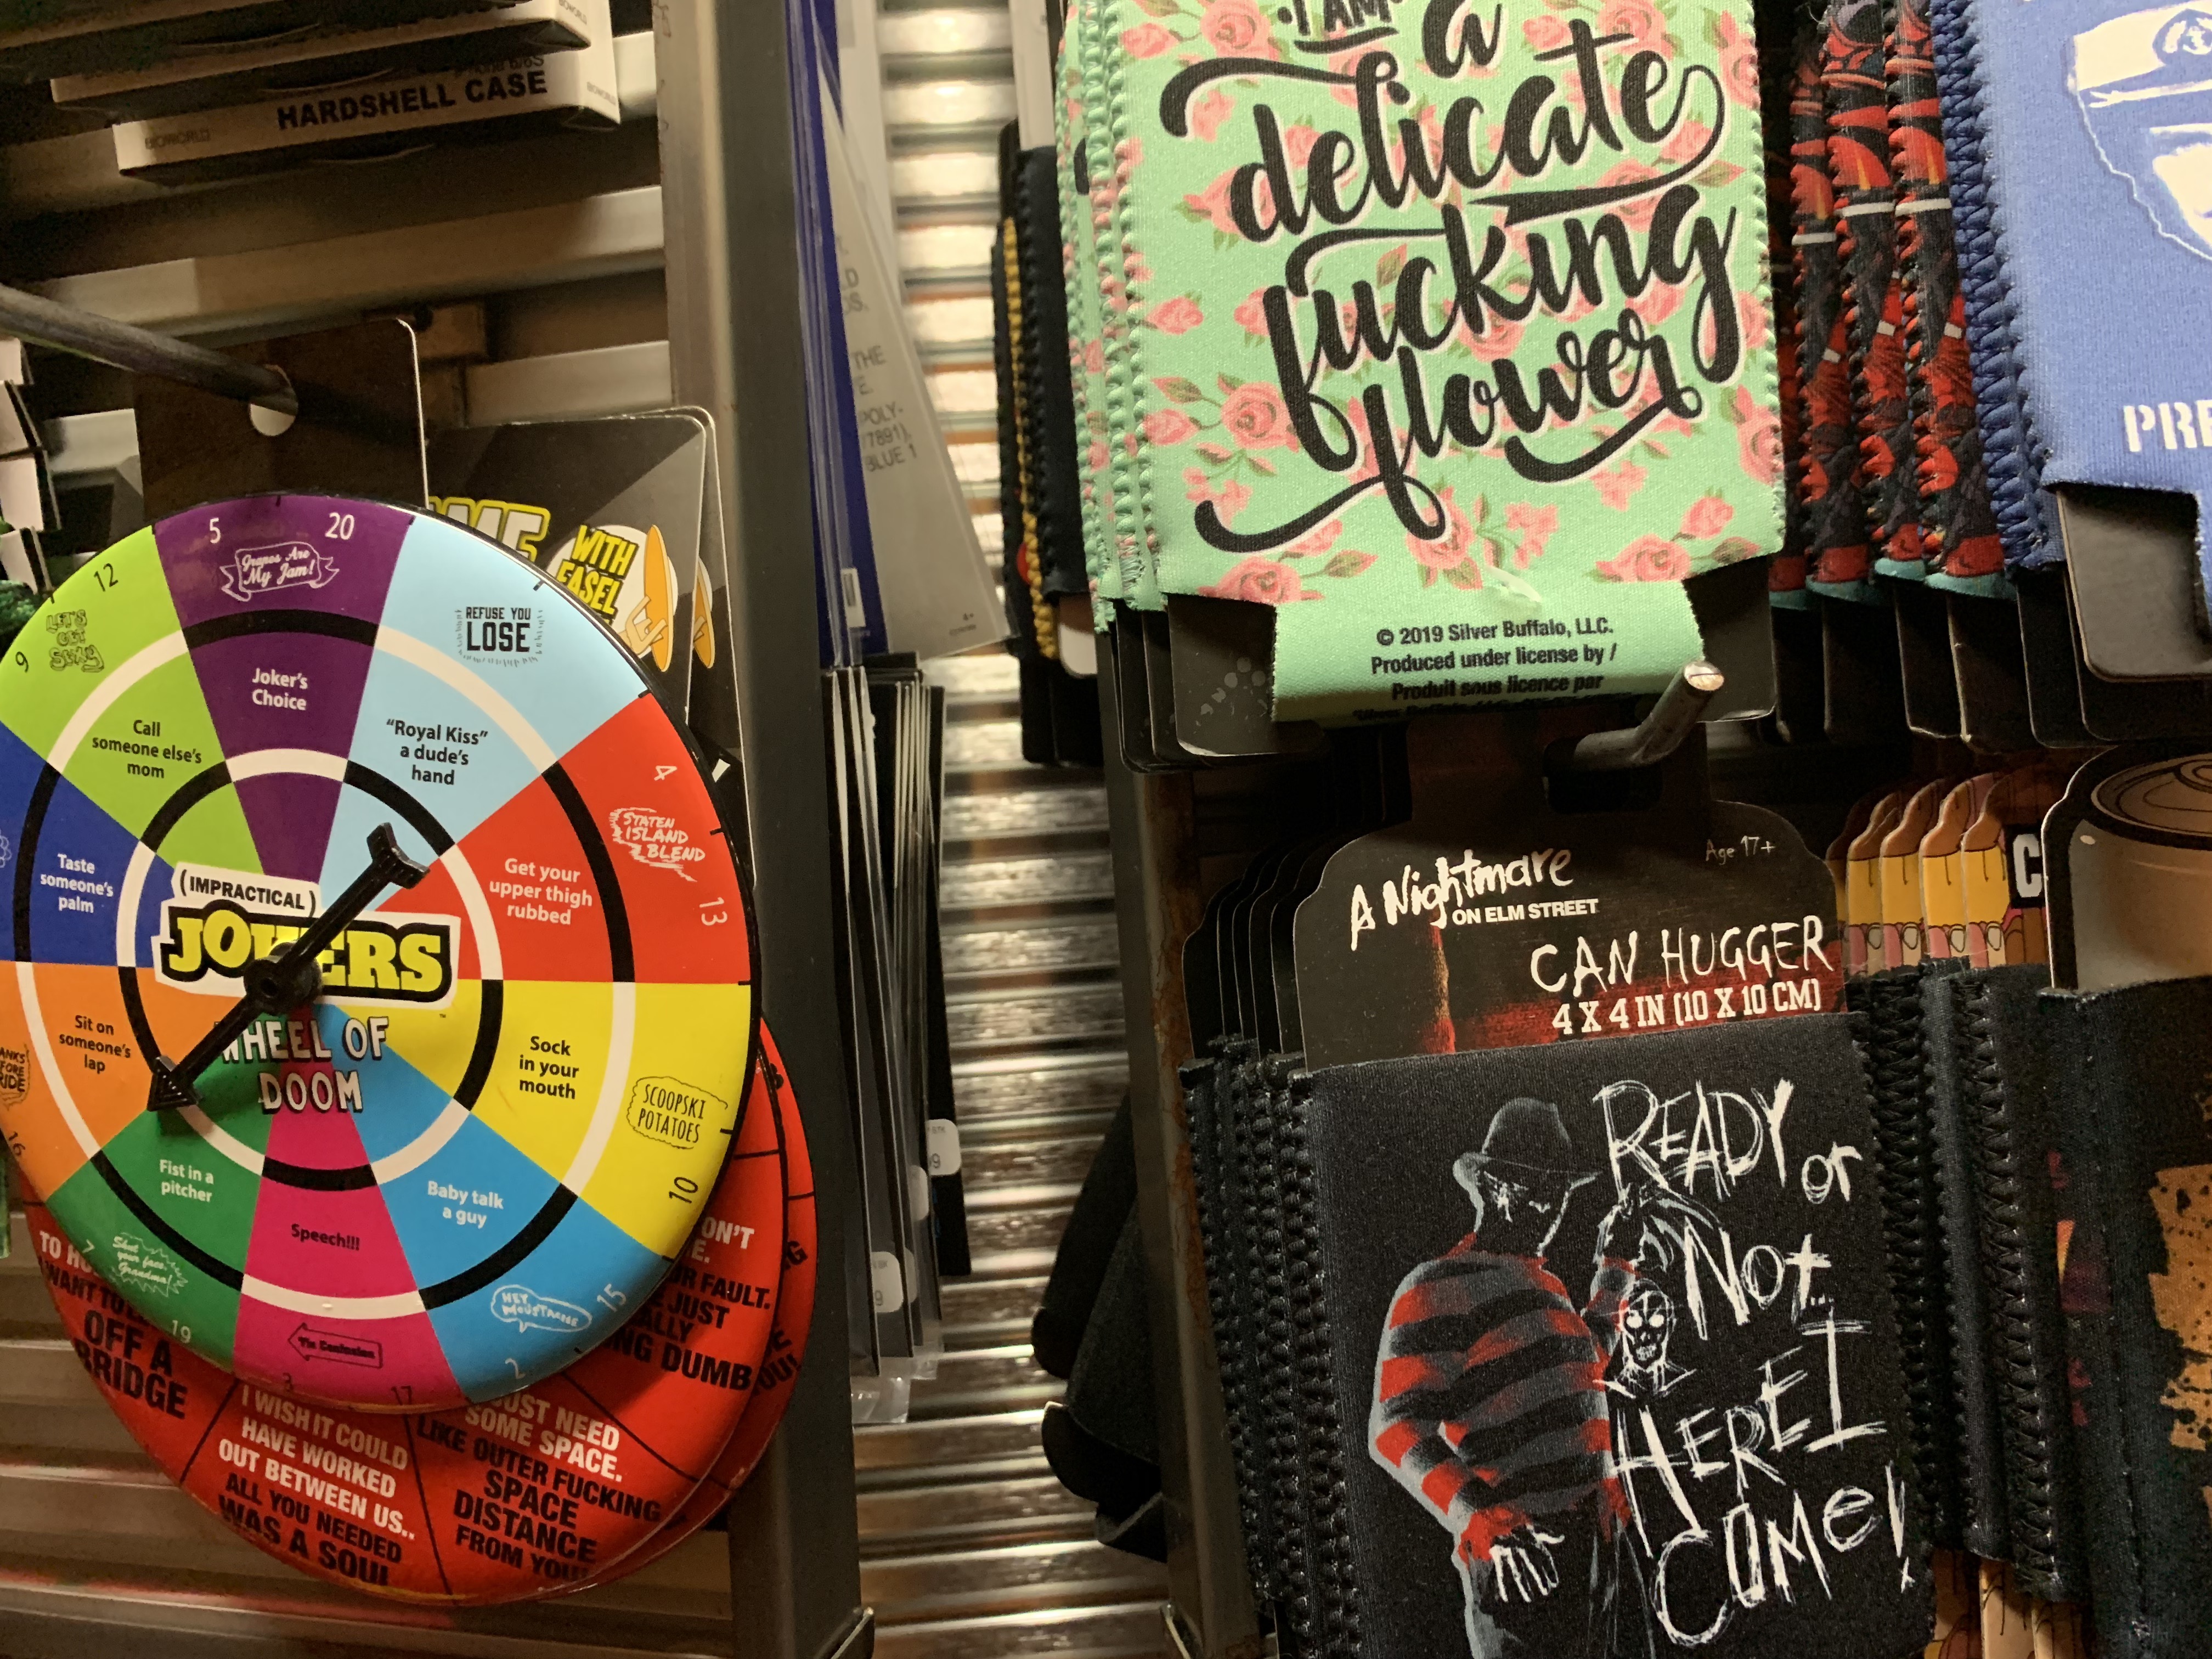 HARDSHELL CASE
BIOWORLD
BIOWORLD
WITH
EASEL
5
20
Grapes Are
My Jam!
Joker's
Choice
REFUSE YOU
LOSE
"Royal Kiss"
a dude's
hand
4
STATEN
ISLAND
BLEND
13
Get your
upper thigh
rubbed
Sock
in your
mouth
SCOOPSKI
POTATOES
10
Baby talk
a guy
HEY
MOUSTACHE
15
2
Speech!!!
3
17
Fist in a
pitcher
Shut
your face,
Grandma!
7
19
Sit on
someone's
lap
16
Taste
someone's
palm
12
LET'S
GET
SEXY
9
Call
someone else's
mom
(IMPRACTICAL)
JOKERS
WHEEL OF
DOOM
OFF A
BRIDGE
I WISH IT COULD
HAVE WORKED
OUT BETWEEN US..
ALL YOU NEEDED
WAS A SOUL
JUST NEED
SOME SPACE.
LIKE OUTER FUCKING
SPACE
DISTANCE
FROM YOU!
FAULT.
JUST
DUMB
THE
POLY-
7891),
BLUE 1
·I AM·
a
delicate
fucking
flower
© 2019 Silver Buffalo, LLC.
Produced under license by /
Produit sous licence par
PRE
A Nightmare
ON ELM STREET
Age 17+
CAN HUGGER
4 X 4 IN (10 X 10 CM)
READY
or
Not..
HERE I
COME!